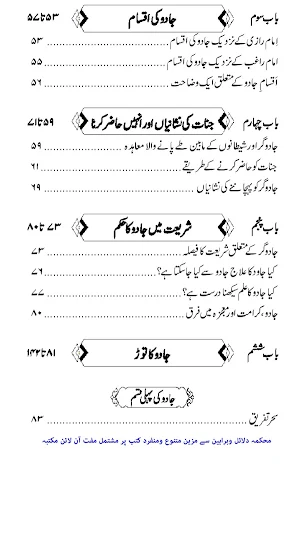 باب سوم جادو کی اقسام ۵۳ تا ۵۷
امام رازی کے نزدیک جادو کی اقسام ۵۳
امام راغب کے نزدیک جادو کی اقسام ۵۵
اقسام جادو کے متعلق ایک وضاحت ۵۶
باب چہارم جنات کی نشانیاں اور انہیں حاضر کرنا ۵۹ تا ۷۱
جادوگر اور شیطانوں کے مابین طے پانے والا معاہدہ ۵۹
جنات کو حاضر کرنے کے طریقے ۶۱
جادوگر کو پہچاننے کی نشانیاں ۶۹
باب پنجم شریعت میں جادو کا حکم ۷۳ تا ۸۰
جادوگر کے متعلق شریعت کا فیصلہ ۷۳
کیا جادو کا علاج جادو سے کیا جا سکتا ہے؟ ۷۶
کیا جادو کا علم سیکھنا درست ہے؟ ۷۷
جادو، کرامت اور معجزہ میں فرق ۸۰
باب ششم جادو کا توڑ ۸۱ تا ۱۴۲
جادو کی پہلی قسم
سحر تفریق ۸۳
محکمہ دلائل وبراہین سے مزین متنوع ومنفرد کتب پر مشتمل مفت آن لائن مکتبہ